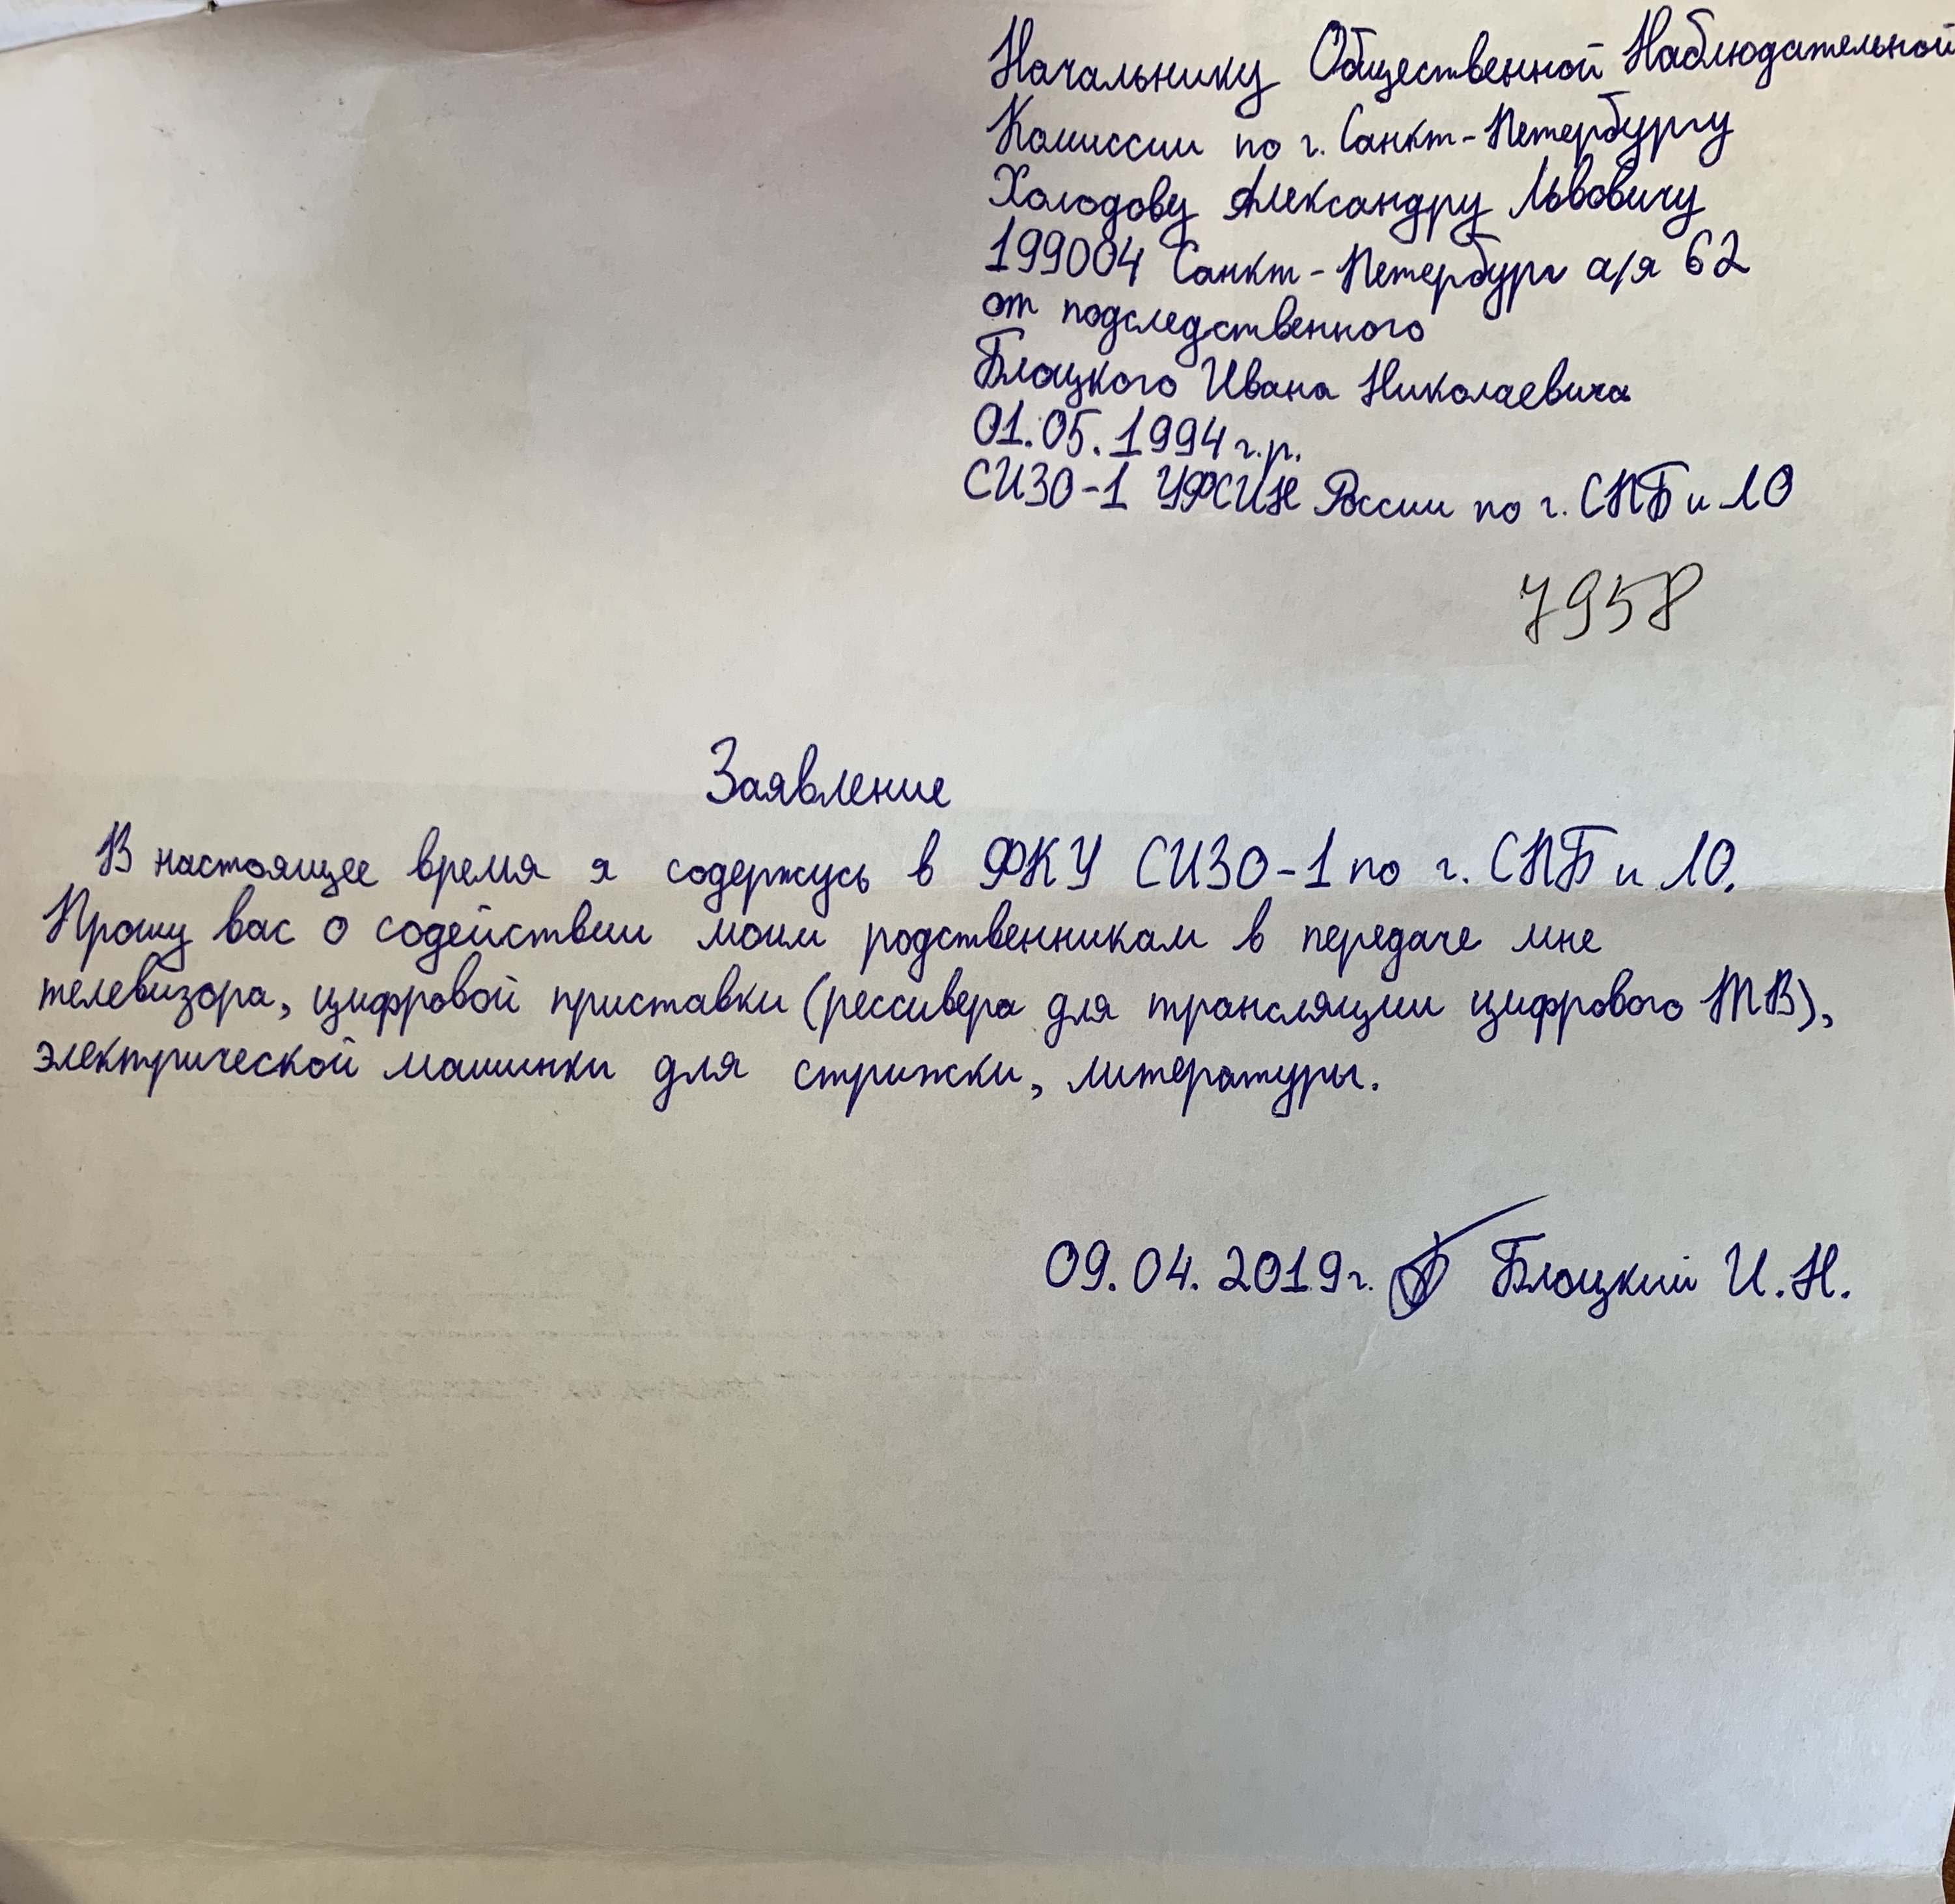 Начальнику Общественной Наблюдательной
Комиссии по г. Санкт-Петербургу
Холодову Александру Львовичу
199004 Санкт-Петербург а/я 62
от подследственного
Блоцкого Ивана Николаевича
01.05.1994 г.р.
СИЗО-1 УФСИН России по г. СПБ и ЛО
7958
Заявление
В настоящее время я содержусь в ФКУ СИЗО-1 по г. СПБ и ЛО.
Прошу вас о содействии моим родственникам в передаче мне
телевизора, цифровой приставки (рессивера для трансляции цифрового ТВ),
электрической машинки для стрижки, литературы.
09.04.2019г. Блоцкий И.Н.